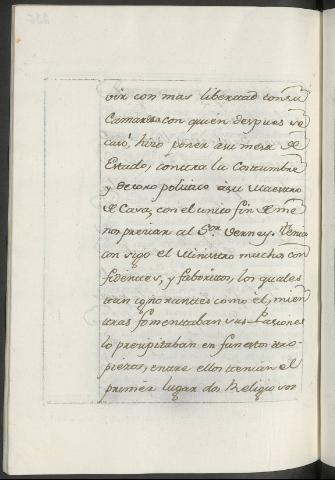 vir con mas libertad con su
Camarera con quien despues se
casó, hizo poner à su mesa de
Estado, contra la Costumbre
y decoro politico à su Maestro
de Casa, con el unico fin de me
nospreciar al S.or Verney. Tenia
con sigo el Ministro muchos con
fidentes, y faboritos, los quales
eran ignorantes como el, mien
tras fomentaban sus Pasiones
lo precipitaban en funestos tro-
piezos, entre ellos tenian el
primer lugar dos Religiosos